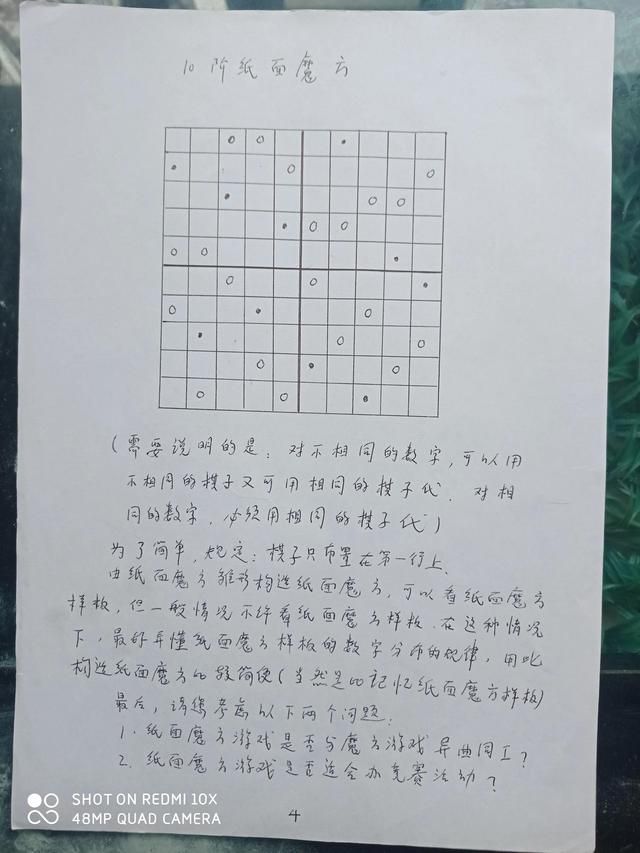 10阶纸面魔方
(需要说明的是：对不相同的数字，可以用
不相同的棋子又可用相同的棋子代．对相
同的数字．必须用相同的棋子代)
为了简单，规定：棋子只布置在第一行上．
由纸面魔方雏形构造纸面魔方，可以看纸面魔方
样板，但一般情况不许看纸面魔方样板．在这种情况
下，最好弄懂纸面魔方样板的数字分布的规律，用此
构造纸面魔方比较简便(当然是比记忆纸面魔方样板)
最后，请您考虑以下两个问题：
1．纸面魔方游戏是否与魔方游戏异曲同工？
2．纸面魔方游戏是否适合办竞赛活动？
SHOT ON REDMI 10X
48MP QUAD CAMERA
4